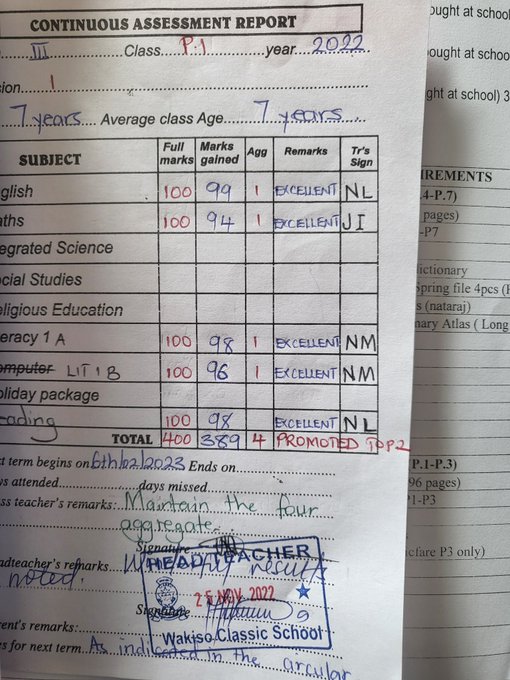 CONTINUOUS ASSESSMENT REPORT
III Class P.1 year 2022
ion 1
7 years Average class Age 7 years
SUBJECT Full marks Marks gained Agg Remarks Tr's Sign
glish 100 99 1 EXCELLENT NL
ths 100 94 1 EXCELLENT JI
egrated Science
cial Studies
ligious Education
eracy 1 A 100 98 1 EXCELLENT NM
omputer LIT 1 B 100 96 1 EXCELLENT NM
oliday package
eading 100 98 EXCELLENT NL
TOTAL 400 389 4 PROMOTED TO P.2
t term begins on 6th/02/2023 Ends on
s attended days missed
ss teacher's remarks: Maintain the four
aggregate.
Signature
adteacher's remarks results
noted.
HEAD TEACHER
25 NOV 2022
Signature
Wakiso Classic School
ent's remarks:
s for next term. As indicated in the circular
ought at school
ought at schoo
ght at school) 3
IREMENTS
.4-P.7)
pages)
-P7
ictionary
pring file 4pcs (
s (nataraj)
nary Atlas ( Long
P.1-P.3)
96 pages)
1-P3
icfare P3 only)